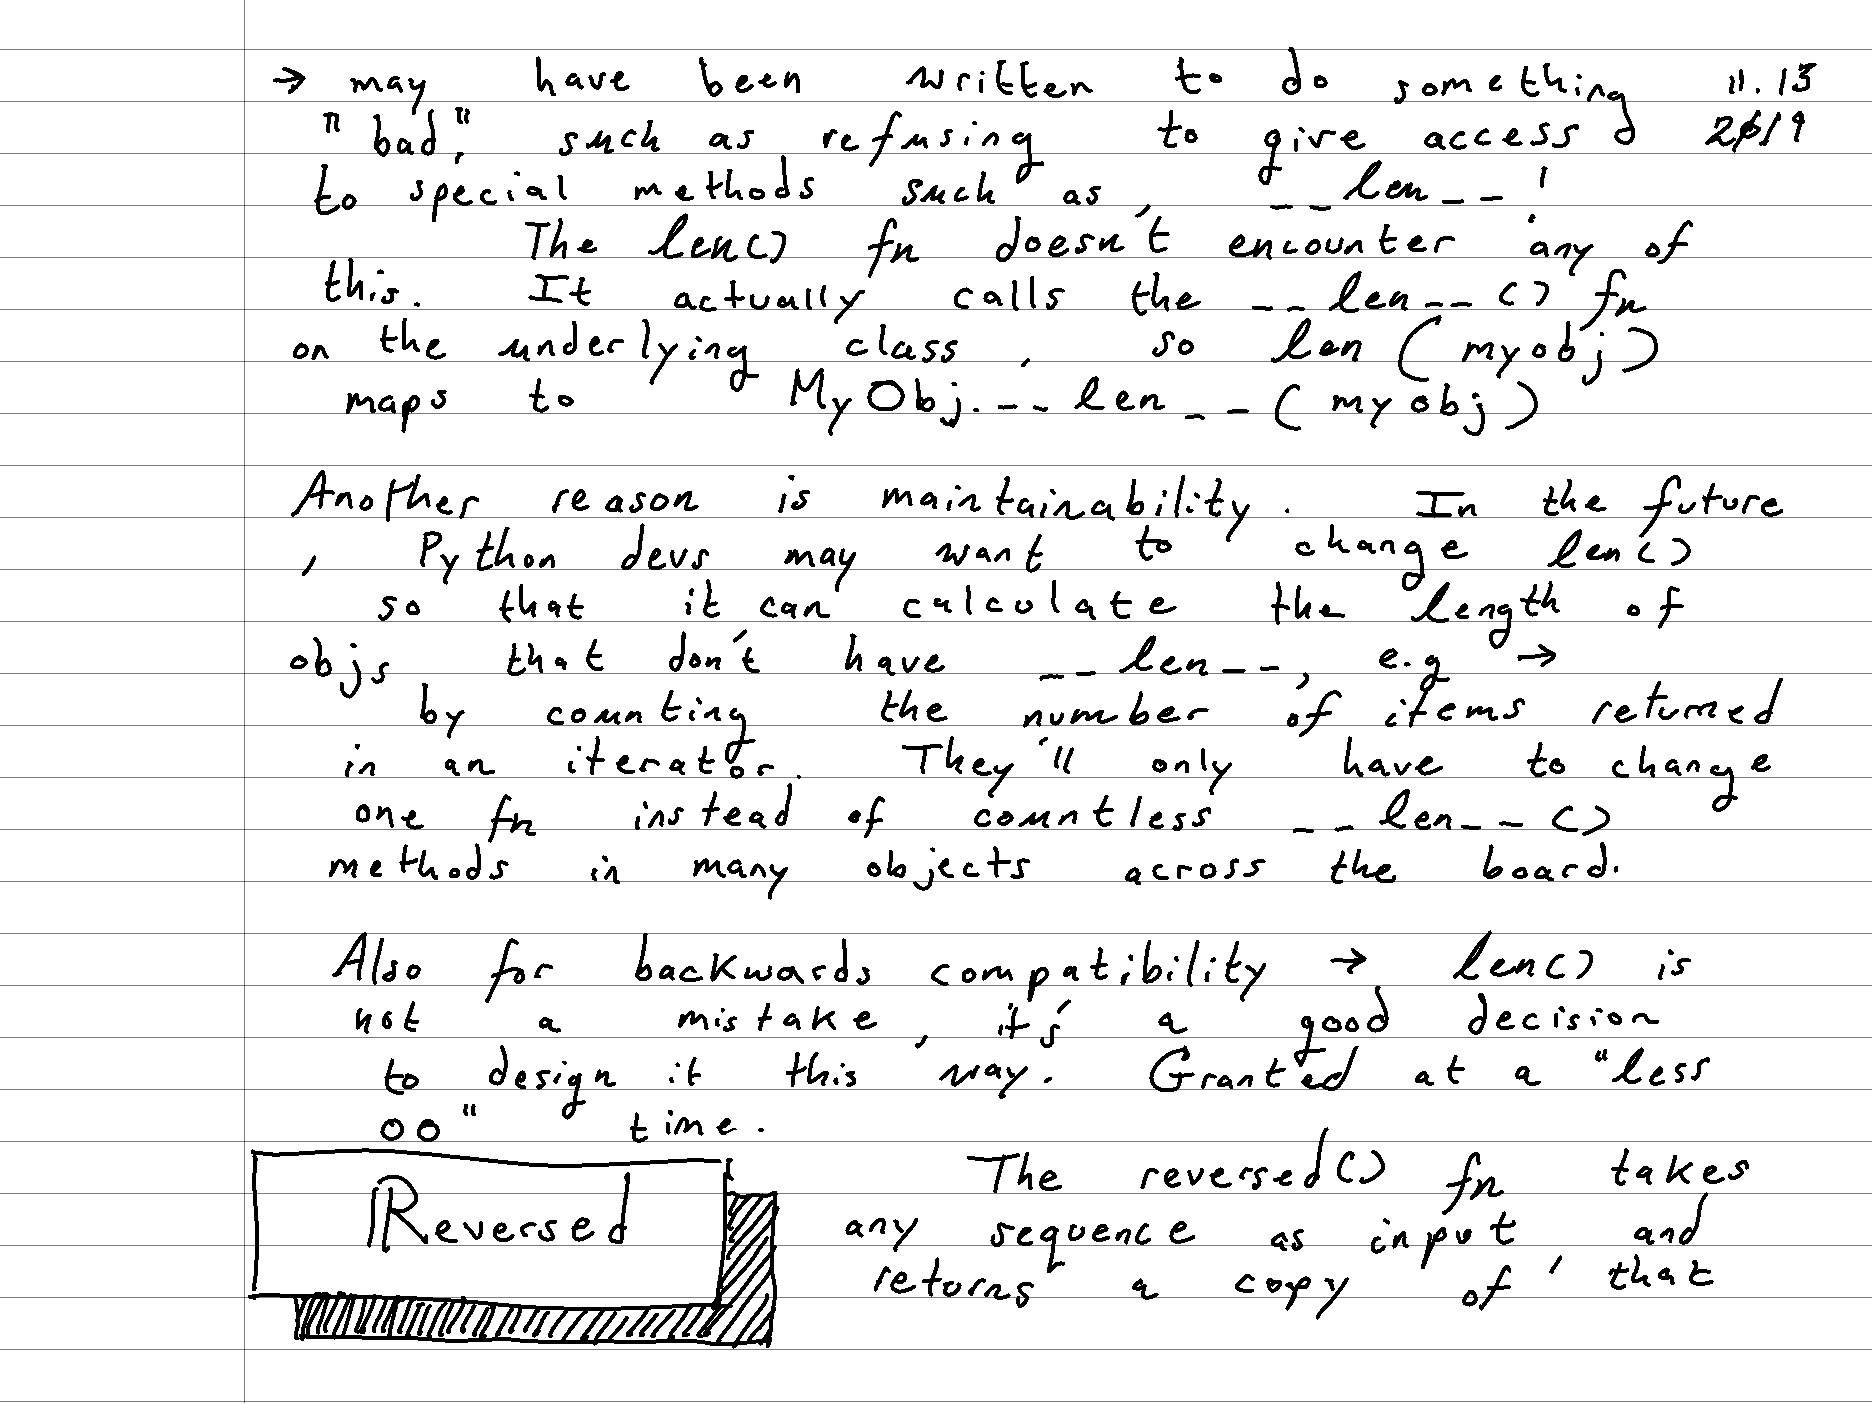 → may have been written to do something 11.13
"bad," such as refusing to give access 2019
to special methods such as, __len__!
The len() fn doesn't encounter any of
this. It actually calls the __len__() fn
on the underlying class, so len(myobj)
maps to MyObj.__len__(myobj)
Another reason is maintainability. In the future
, Python devs may want to change len()
so that it can calculate the length of
objs that don't have __len__, e.g →
by counting the number of items returned
in an iterator. They'll only have to change
one fn instead of countless __len__()
methods in many objects across the board.
Also for backwards compatibility → len() is
not a mistake, it's a good decision
to design it this way. Granted at a "less
OO" time.
Reversed
The reversed() fn takes
any sequence as input, and
returns a copy of that